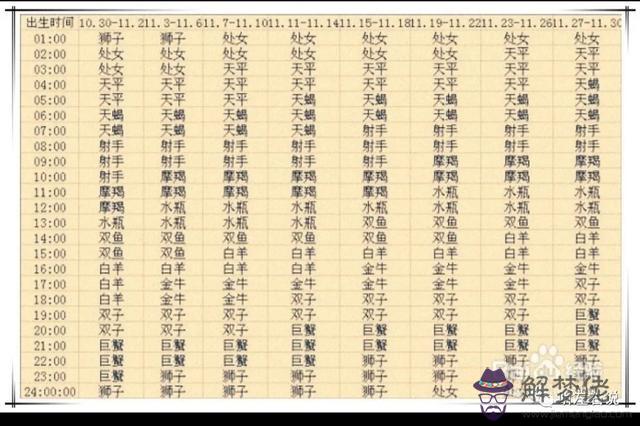 出生时间 10.30-11.2 11.3-11.6 11.7-11.10 11.11-11.14 11.15-11.18 11.19-11.22 11.23-11.26 11.27-11.30
01:00 狮子 狮子 处女 处女 处女 处女 处女 处女
02:00 处女 处女 处女 处女 处女 处女 天平 天平
03:00 处女 处女 天平 天平 天平 天平 天平 天平
04:00 天平 天平 天平 天平 天平 天平 天平 天蝎
05:00 天平 天平 天平 天蝎 天蝎 天蝎 天蝎 天蝎
06:00 天蝎 天蝎 天蝎 天蝎 天蝎 天蝎 天蝎 天蝎
07:00 天蝎 天蝎 天蝎 天蝎 射手 射手 射手 射手
08:00 射手 射手 射手 射手 射手 射手 射手 射手
09:00 射手 射手 射手 射手 射手 摩羯 摩羯 摩羯
10:00 射手 摩羯 摩羯 摩羯 摩羯 摩羯 摩羯 摩羯
11:00 摩羯 摩羯 摩羯 摩羯 摩羯 水瓶 水瓶 水瓶
12:00 摩羯 水瓶 水瓶 水瓶 水瓶 水瓶 水瓶 水瓶
13:00 水瓶 水瓶 水瓶 水瓶 双鱼 双鱼 双鱼 双鱼
14:00 双鱼 双鱼 双鱼 双鱼 双鱼 双鱼 白羊 白羊
15:00 双鱼 双鱼 白羊 白羊 白羊 白羊 白羊 白羊
16:00 白羊 白羊 白羊 白羊 金牛 金牛 金牛 金牛
17:00 白羊 金牛 金牛 金牛 金牛 金牛 金牛 双子
18:00 白羊 金牛 金牛 双子 双子 双子 双子 双子
19:00 双子 双子 双子 双子 双子 双子 双子 巨蟹
20:00 双子 双子 双子 巨蟹 巨蟹 巨蟹 巨蟹 巨蟹
21:00 巨蟹 巨蟹 巨蟹 巨蟹 巨蟹 巨蟹 巨蟹
22:00 巨蟹 巨蟹 巨蟹 巨蟹 狮子 狮子 狮子 狮子
23:00 巨蟹 狮子 狮子 狮子 狮子 狮子
24:00:00 狮子 狮子 狮子 狮子 狮子 处女
解梦佬
www.jiemenglao.com